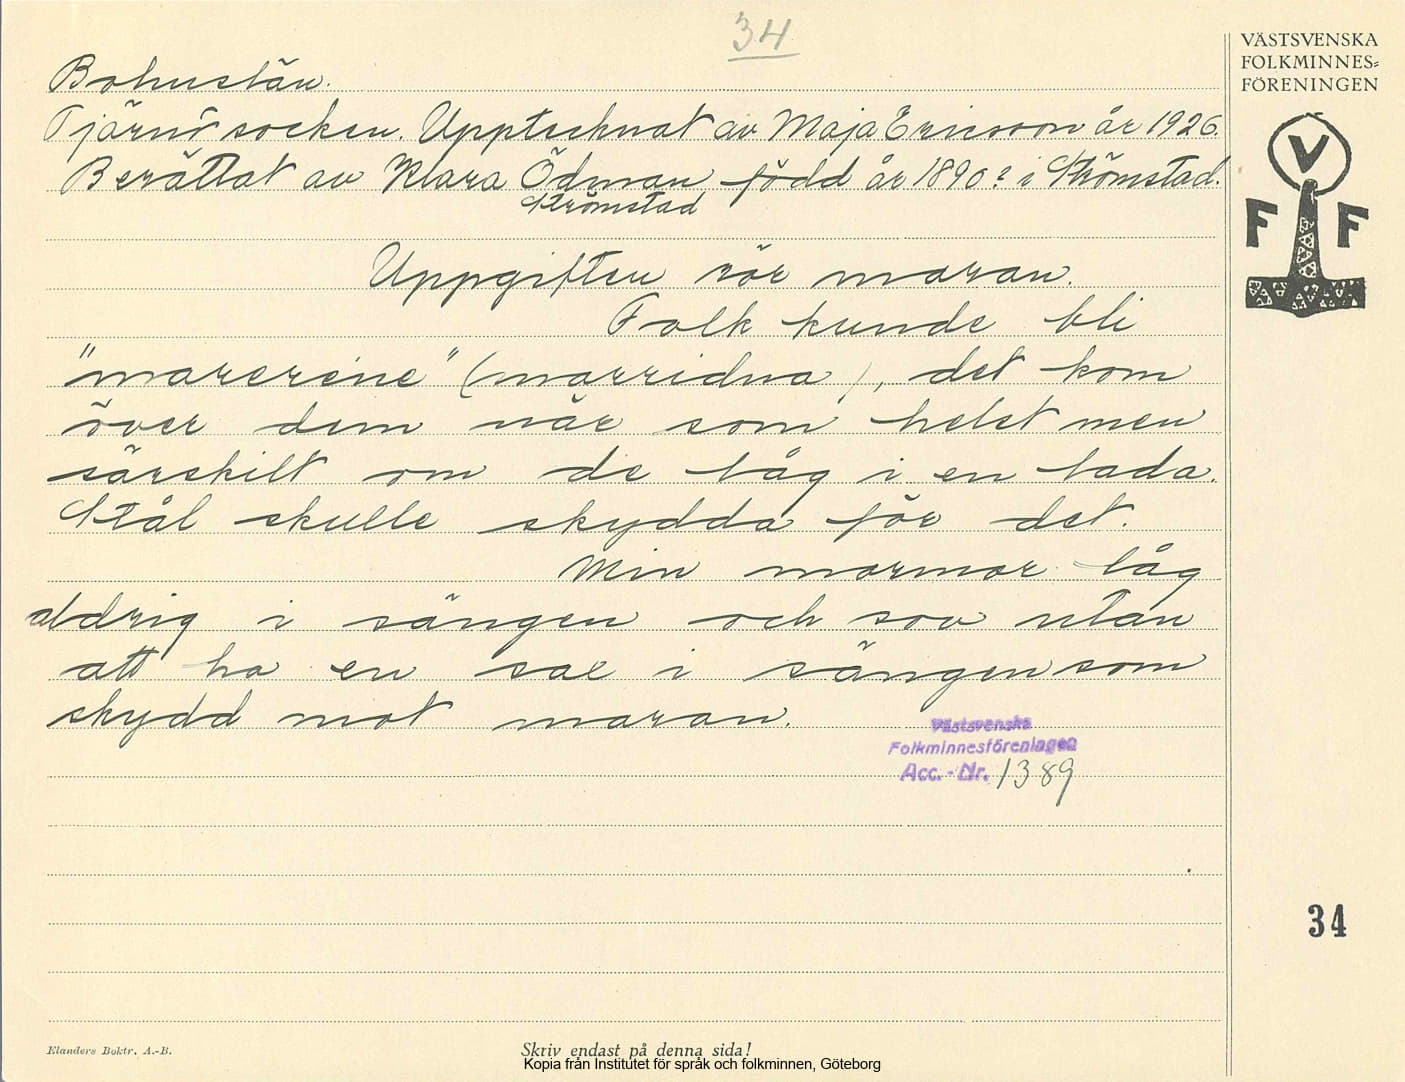 34
VÄSTSVENSKA
FOLKMINNES=
FÖRENINGEN
V
F F
Bohuslän.
Tjärnö socken. Upptecknat av Maja Ericsson år 1926.
Berättat av Klara Ödman född år 1890? i Strömstad.
Strömstad
Uppgiften rör maran.
Folk kunde bli
"mareréne" (marridna), det kom
över dem när som helst men
särskilt om de låg i en lada.
Stål skulle skydda för det.
Min mormor låg
aldrig i sängen och sov utan
att ha en sax i sängen som
skydd mot maran.
Västsvenska
Folkminnesföreningen
Acc. - Nr. 1389
34
Elanders Boktr. A.-B.
Skriv endast på denna sida!
Kopia från Institutet för språk och folkminnen, Göteborg